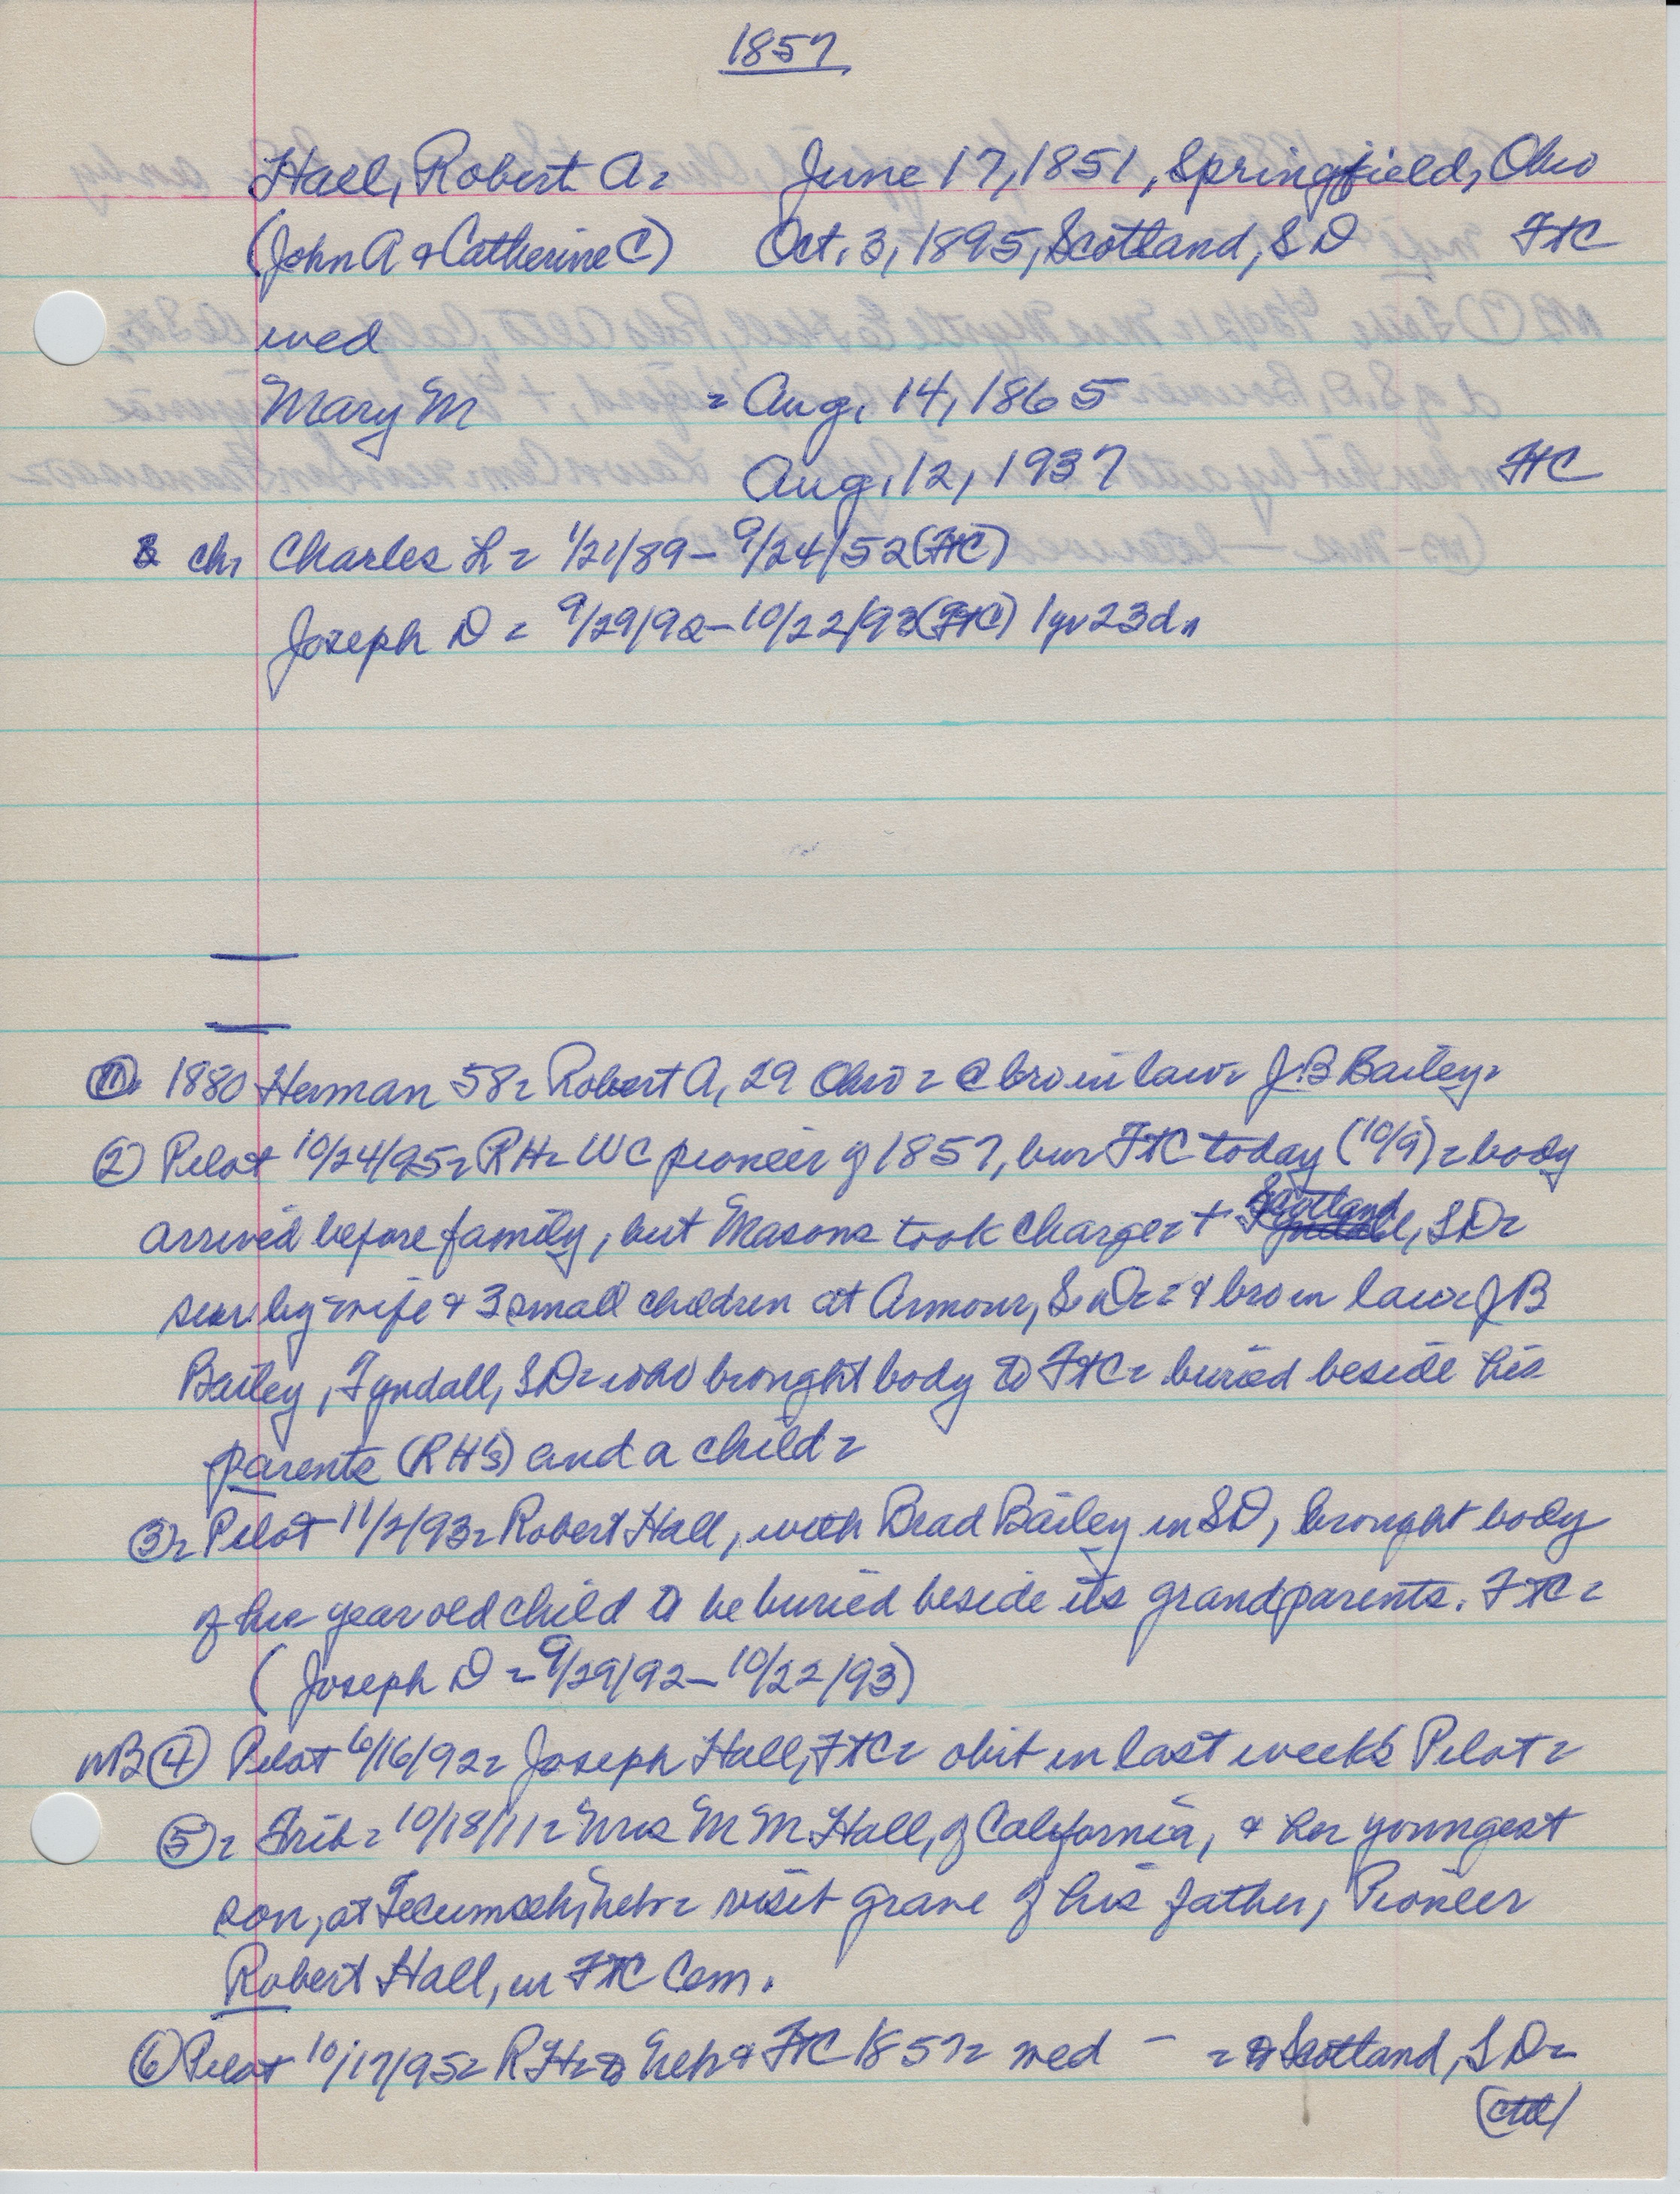 1857
Hall, Robert A = June 17, 1851, Springfield, Ohio
(John A & Catherine C) Oct. 3, 1895, Scotland, SD FtC
wed
Mary M = Aug. 14, 1865
Aug. 12, 1937 FtC
ch, Charles L = 1/21/89 – 9/24/52 (FtC)
Joseph D = 9/29/92 – 10/22/93 (FtC) 1 yr 23 d.
① 1880 Herman 58 = Robert A, 29 Ohio = @ bro in law = J B Bailey =
② Pilot 10/24/95 = RH = WC pioneer of 1857, bur FtC today (10/9) = body
arrived before family, but Masons took charge = + Scotland, SD =
surv. by wife & 3 small children at Armour, S.D. = = & bro in law = J B
Bailey, Tyndall, SD = who brought body to FtC = buried beside his
parents (RH's) and a child =
③ = Pilot 11/2/93 = Robert Hall, with Brad Bailey in SD, brought body
of his year old child to be buried beside its grandparents. FtC =
(Joseph D = 9/29/92 – 10/22/93)
NB ④ Pilot 6/16/92 = Joseph Hall, FtC = obit in last week's Pilot =
⑤ = Trib = 10/18/11 = Mrs M M Hall, of California, & her youngest
son, at Tecumseh, Nebr = visit grave of his father, Pioneer
Robert Hall, in FtC Cem.
⑥ Pilot 10/17/95 = RH = Neb & FtC 1857 = wed – = Scotland, SD =
(ctd)